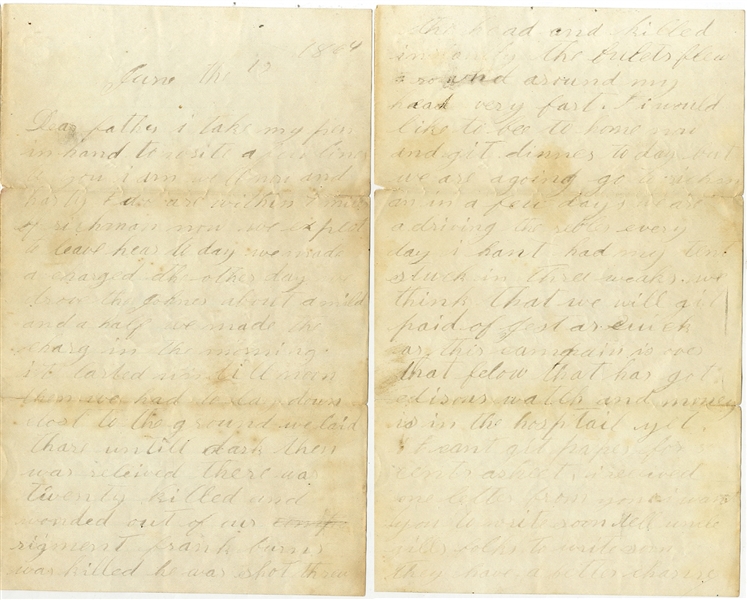 June the 13 1864
Dear father i take my pen
in hand to write a few lines
to you i am well now and
we are within 7 miles
of richman now we expect
to leave hear to day we made
a charged the other day we
drove the about a mile
and a half we made the
charg in the morning
it lasted till noon
then we had to lay down
clost to the ground we laid
thare untill dark then
was releived there was
twenty killed and
wonded out of our
rigment frank burns
was killed he was shot threw
the head and killed
instantly the bulets flew
around around my
head very fast. i would
like to bee to home now
and git dinner to day but
we are agoing go
on in a few days we are
a driving the rebs every
day i hant had my tent
stuck in three weaks. we
think that we will git
paid of jest as quick
as this campain is over
that felow that has got
edisons watch and money
is in the hospitail yet.
i cant git paper for
cents asheet. i received
one letter from
you to write soon tell uncle
folks to write soon
they have a better chance